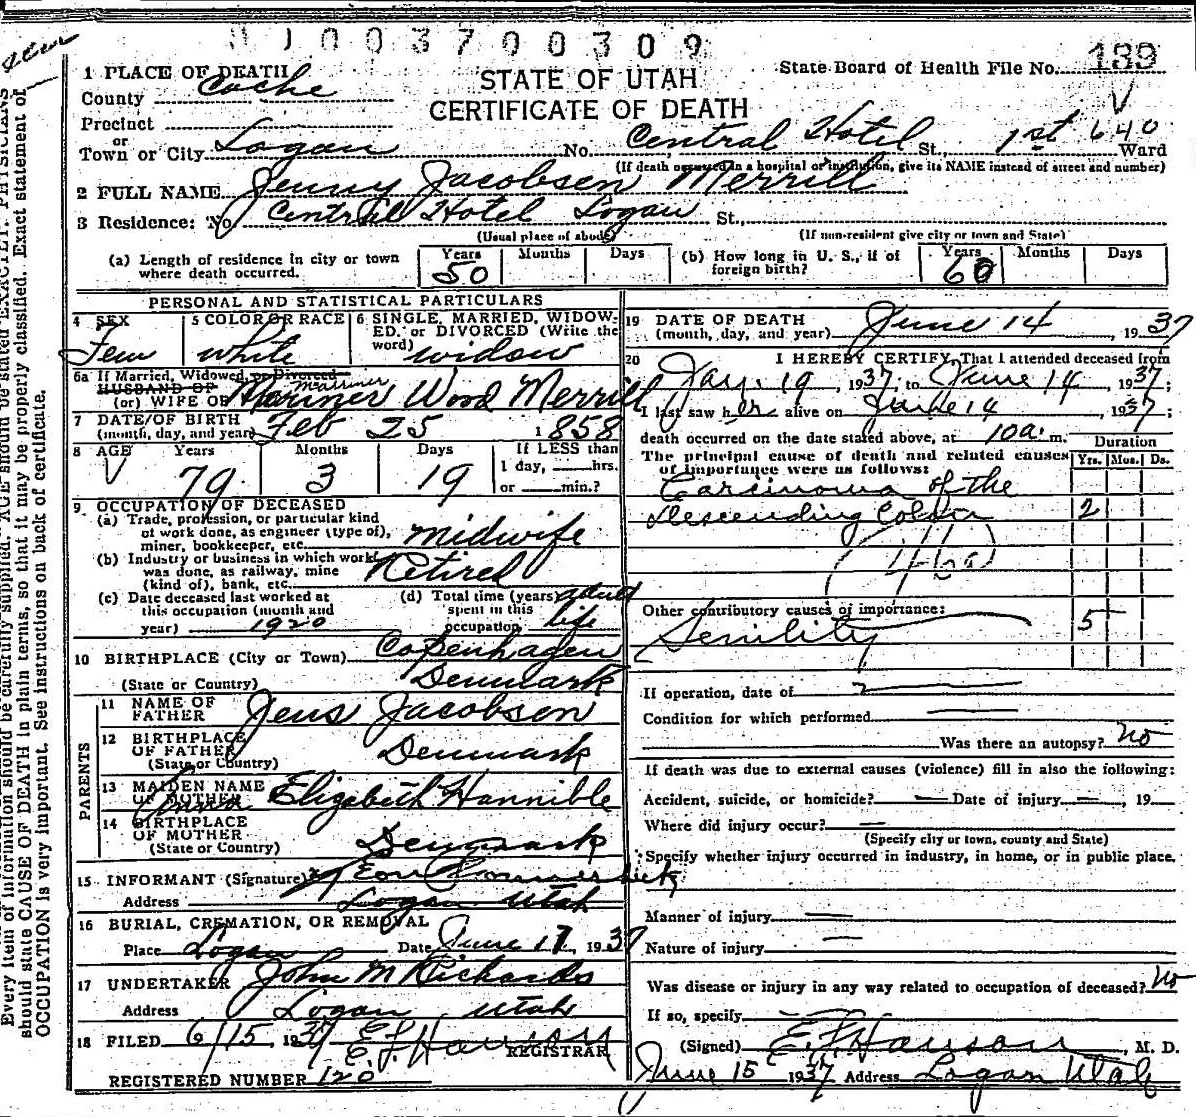 3 7 0 0 3 0 9
189
1 PLACE OF DEATH
County Cache
STATE OF UTAH
CERTIFICATE OF DEATH
State Board of Health File No.
Precinct
or
Town or City Logan No. Central Hotel St., 1st 640 Ward
(If death occurred in a hospital or institution, give its NAME instead of street and number)
2 FULL NAME Jenny Jacobsen Merrill
3 Residence: No. Central Hotel Logan St.,
(Usual place of abode) (If non-resident give city or town and State)
(a) Length of residence in city or town where death occurred. Years 50 Months Days
(b) How long in U. S., if of foreign birth? Years 60 Months Days
PERSONAL AND STATISTICAL PARTICULARS
4 SEX Fem
5 COLOR OR RACE white
6 SINGLE, MARRIED, WIDOWED, or DIVORCED (Write the word) widow
6a If Married, Widowed, or Divorced
HUSBAND OF
(or) WIFE OF Mariner Wood Merrill
7 DATE OF BIRTH
(month, day, and year) Feb 25 1858
8 AGE Years 79 Months 3 Days 19
If LESS than
1 day, hrs.
or min.?
9 OCCUPATION OF DECEASED
(a) Trade, profession, or particular kind
of work done, as engineer (type of),
miner, bookkeeper, etc. midwife
(b) Industry or business in which work
was done, as railway, mine
(kind of), bank, etc. Retired
(c) Date deceased last worked at
this occupation (month and
year) 1920
(d) Total time (years)
spent in this
occupation adult life
10 BIRTHPLACE (City or Town) Copenhagen
(State or Country) Denmark
PARENTS
11 NAME OF
FATHER Jens Jacobsen
12 BIRTHPLACE
OF FATHER
(State or Country) Denmark
13 MAIDEN NAME
OF MOTHER Elizabeth Hannible
14 BIRTHPLACE
OF MOTHER
(State or Country) Denmark
15 INFORMANT (Signature)
Address Logan Utah
16 BURIAL, CREMATION, OR REMOVAL
Place Logan Date June 17, 1937
17 UNDERTAKER John M Richards
Address Logan Utah
18 FILED 6/15, 1937 E. L. Hanson
REGISTRAR
REGISTERED NUMBER 120
19 DATE OF DEATH
(month, day, and year) June 14 1937
20 I HEREBY CERTIFY, That I attended deceased from
Jan. 19 1937, to June 14, 1937;
I last saw her alive on June 14, 1937;
death occurred on the date stated above, at 10 a. m.
The principal cause of death and related causes
of importance were as follows:
Duration
Yrs. Mos. Ds.
Carcinoma of the
Descending Colon 2
Other contributory causes of importance:
Senility 5
If operation, date of
Condition for which performed
Was there an autopsy? no
If death was due to external causes (violence) fill in also the following:
Accident, suicide, or homicide? — Date of injury —, 19
Where did injury occur? —
(Specify city or town, county and State)
Specify whether injury occurred in industry, in home, or in public place.
Manner of injury —
Nature of injury —
Was disease or injury in any way related to occupation of deceased? no
If so, specify
(Signed) E. L. Hanson, M. D.
June 15 1937 Address Logan Utah
Every item of information should be carefully supplied. AGE should be stated EXACTLY. PHYSICIANS
should state CAUSE OF DEATH in plain terms, so that it may be properly classified. Exact statement of
OCCUPATION is very important. See instructions on back of certificate.